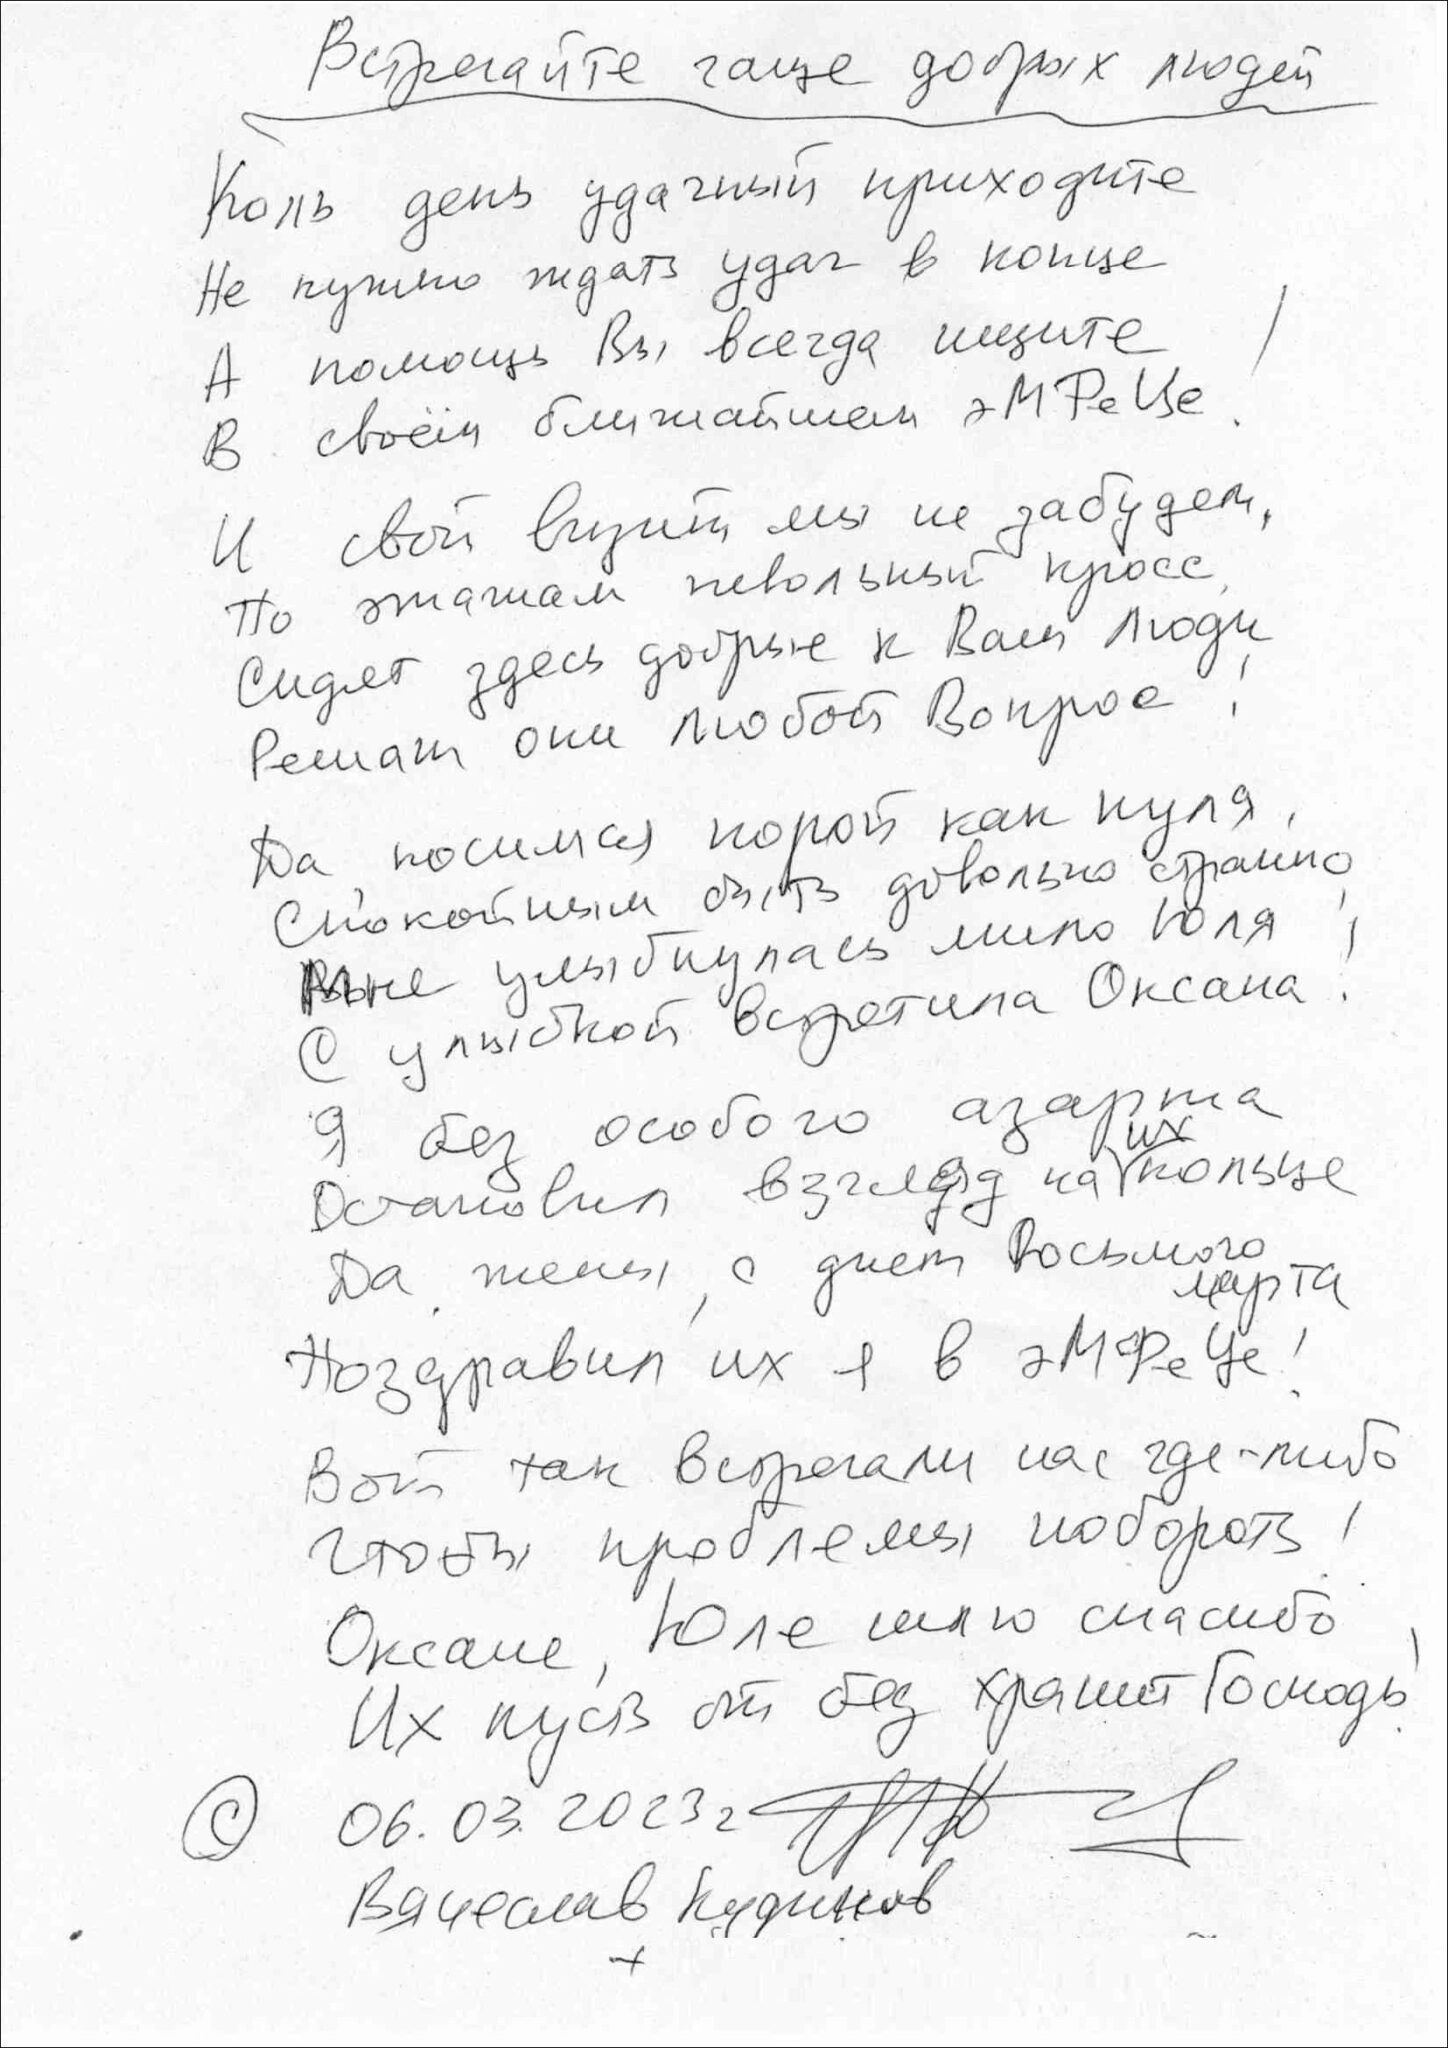 Встречайте чаще добрых людей
Коль день удачный приходите
Не нужно ждать удач в конце
А помощь Вы всегда ищите
В своём ближайшем эМФеЦе!
И свой визит мы не забудем,
По этажам невольный кросс,
Сидят здесь добрые к Вам люди
Решат они любой вопрос!
Да, носимся порой как пуля,
Спокойным быть довольно странно,
Мне улыбнулась мило Юля!
С улыбкой встретила Оксана!
Я без особого азарта
Остановил взгляд на их кольце
Да, жены, с днем Восьмого
марта
Поздравил их я в эМФеЦе!
Вот так встречали нас где-либо
Чтобы проблемы побороть!
Оксане, Юле шлю спасибо,
Их пусть от бед хранит Господь!
© 06.03.2023г
Вячеслав Кудинов